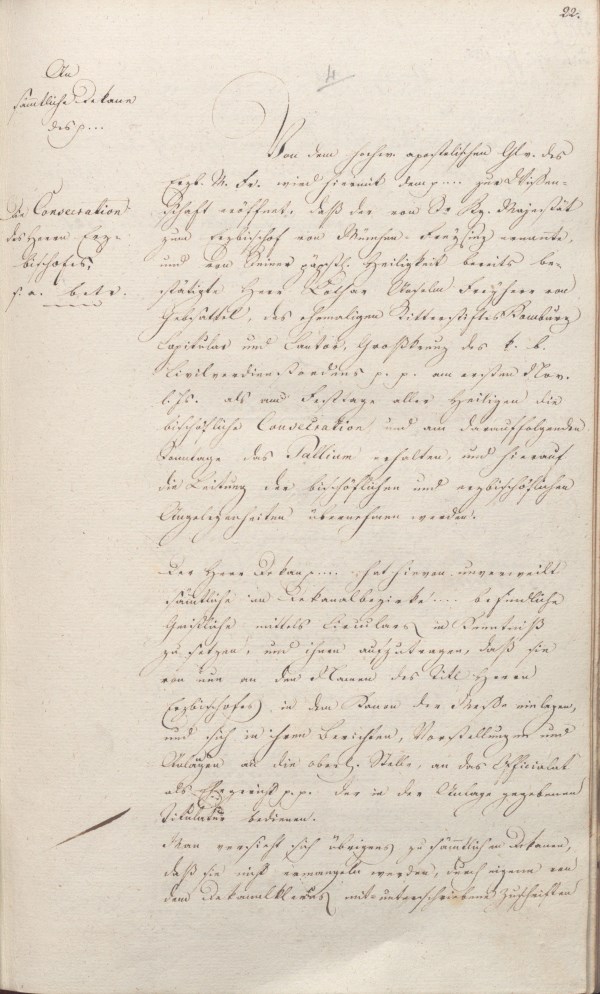 22.
4
An
sämmtliche Dekane
des p...
Die Consecration
des Herrn Erz-
bischofes,
Von dem hochw. apostolischen Glv. des
Erzb. M. Fr. wird hiermit dem p.... zur Wissen-
schaft eröffnet, daß der von Sr. Kg. Majestät
zum Erzbischof von München-Freysing ernante,
und von Seiner päpstl. Heiligkeit bereits be-
stätigte Herr Lothar Anselm Freyherr von
Gebsattel, des ehemaligen Ritterstiftes Komburg
Capitular und Cantor, Großkreuz des k. b.
Civilverdienstordens p. p. am ersten Nov.
l. Js. als am Festtage aller Heiligen die
bischöfliche Consecration, und am darauffolgenden
Sonntage das Pallium erhalten, und hierauf
die Leitung der bischöflichen und erzbischöflichen
Angelegenheiten übernehmen werden.
Der Herr Dekan p.... hat hievon unverweilt
sämtliche im Dekanalbezirke .... befindliche
Geistliche mittels Circulars in Kenntniß
zu setzen, und ihnen aufzutragen, daß sie
von nun an den Namen des Titl Herrn
Erzbischofes in dem Kanon der Messe einlegen,
und sich in ihren Berichten, Vorstellungen und
Anlagen an die oberh. Stelle, an das Officialat
als Ehegericht p.p. der in der Anlage gegebenen
Titulatur bedienen.
Man versieht sich übrigens zu sämmtlichen Dekanen,
daß sie nicht ermangeln werden, durch eigene von
dem Dekanalklerus mitunterschriebene Zuschriften